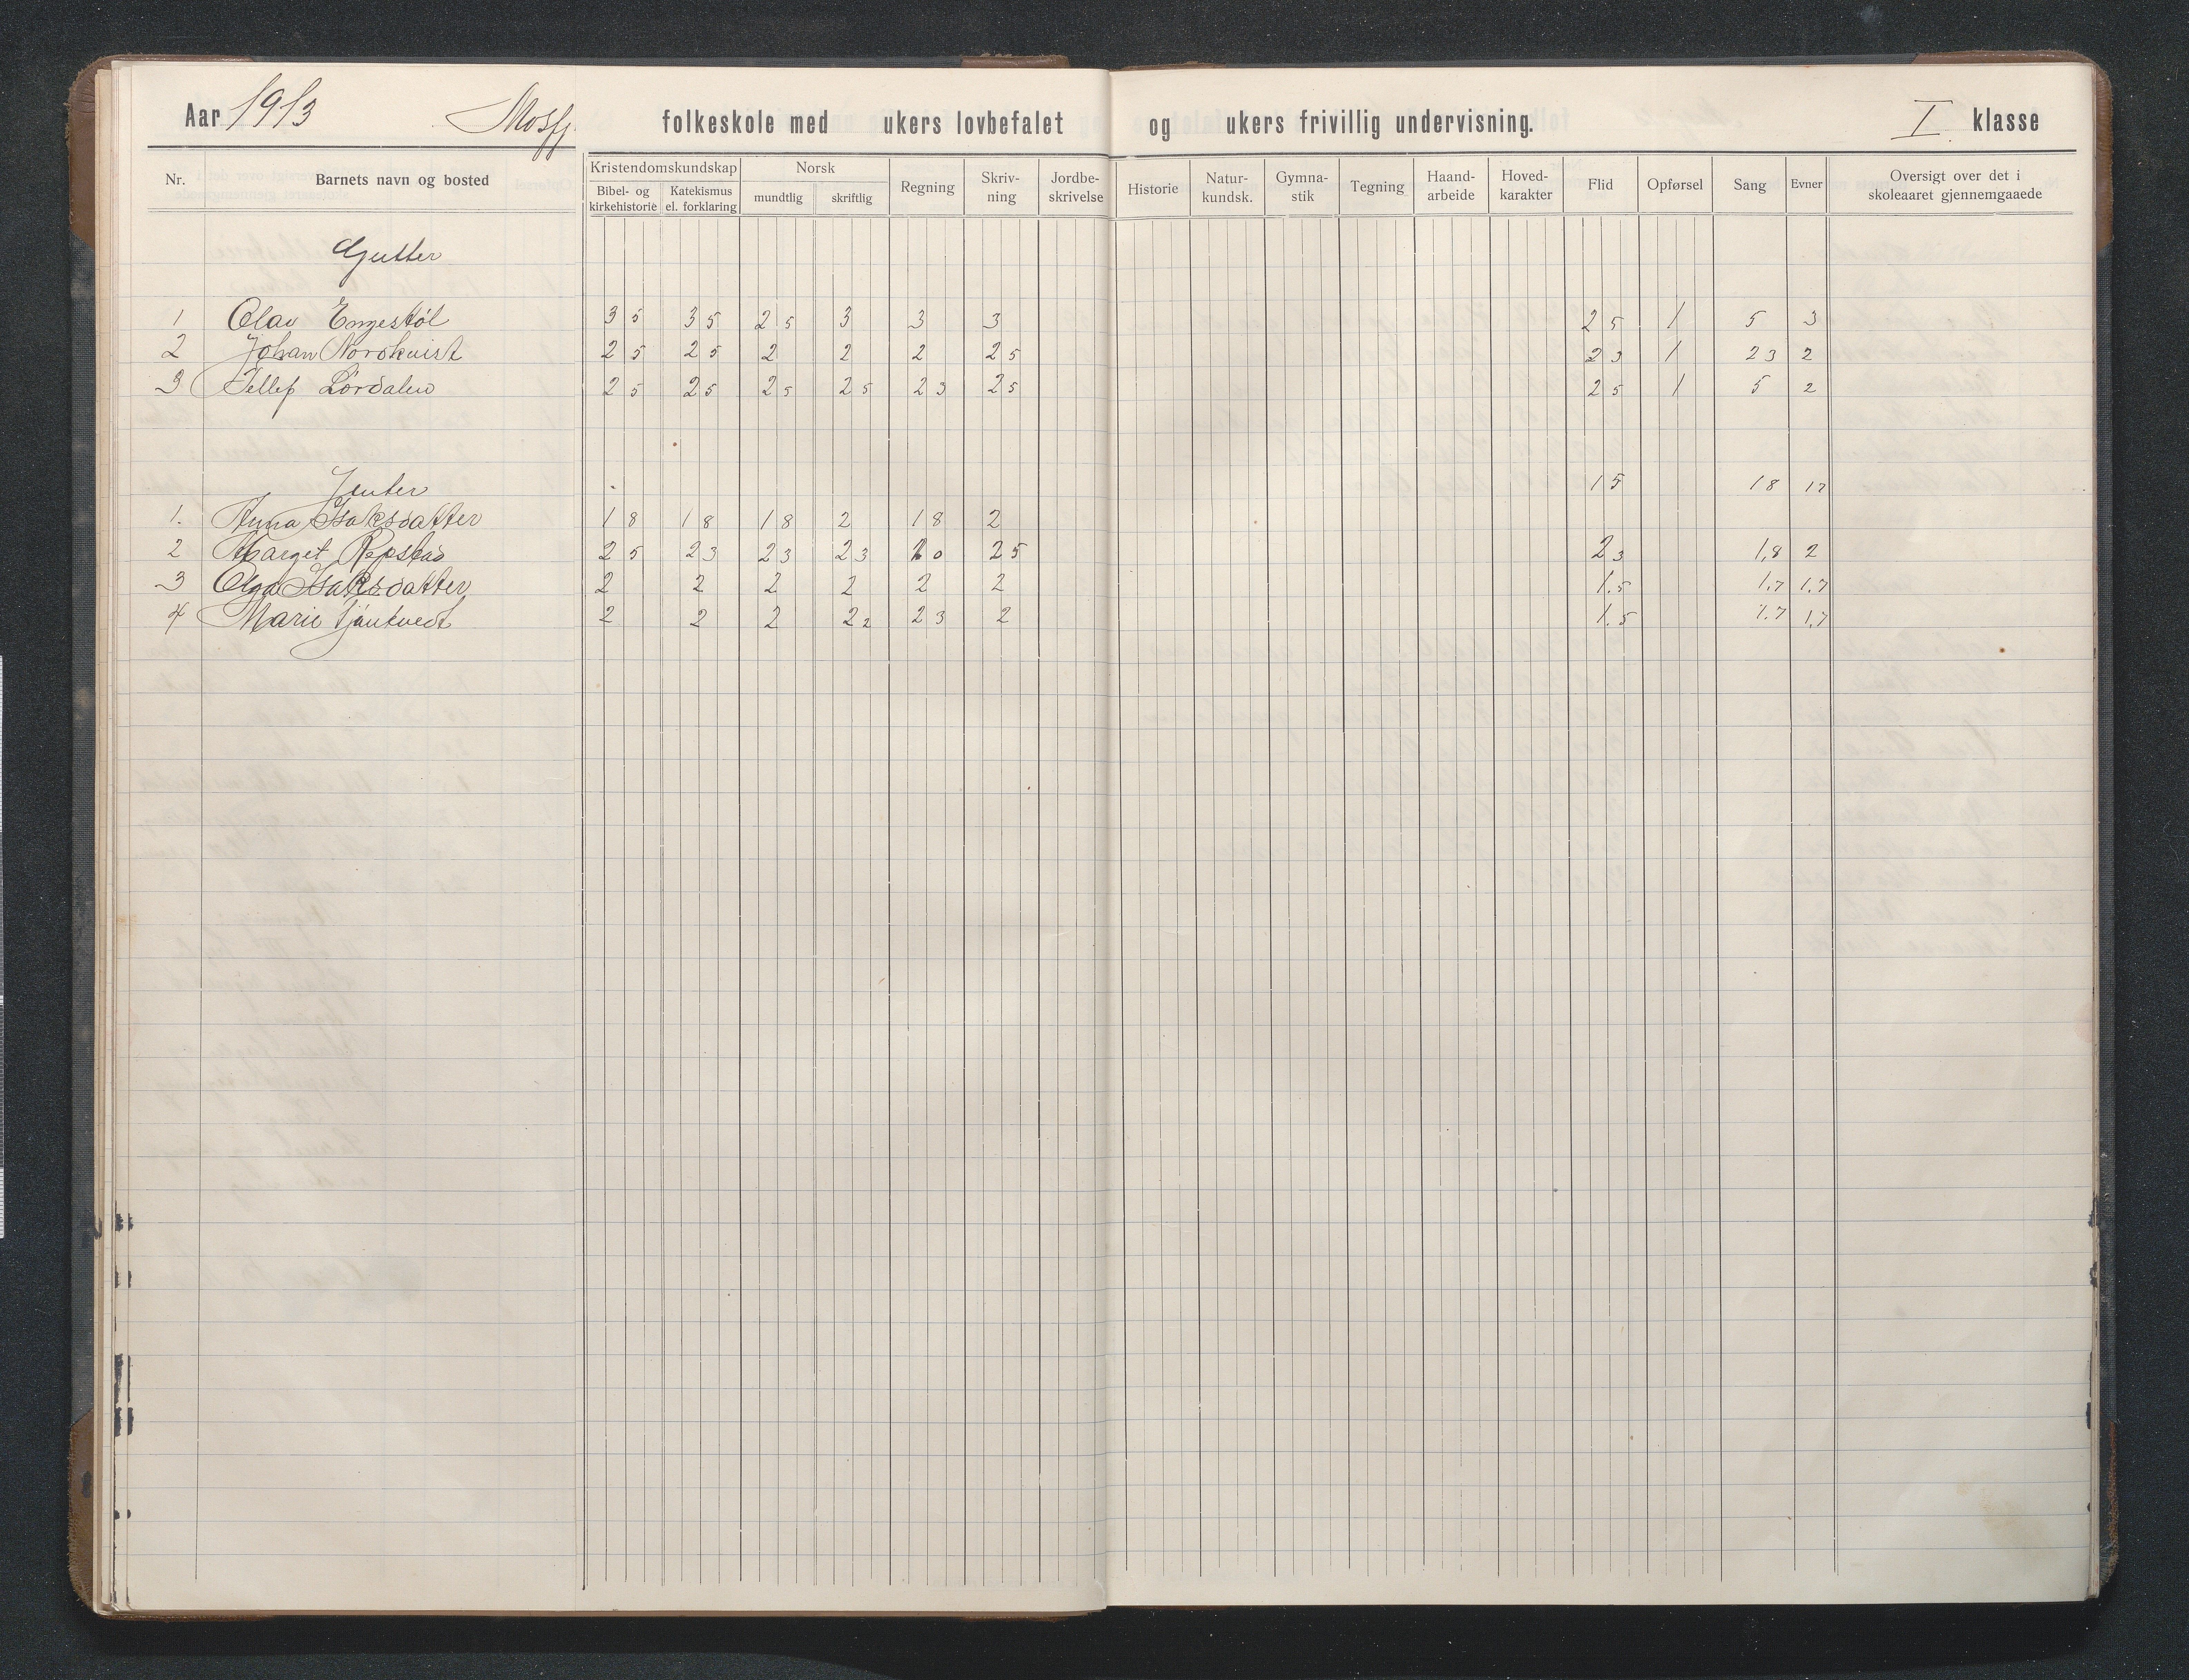 Aar 1913 Mosfj. folkeskole med ukers lovbefalet og ukers frivillig undervisning. I klasse
Nr. Barnets navn og bosted Kristendomskundskap Bibel- og kirkehistorie Katekismus el. forklaring Norsk mundtlig skriftlig Regning Skriv-ning Jordbe-skrivelse Historie Natur-kundsk. Gymna-stik Tegning Haand-arbeide Hoved-karakter Flid Opførsel Sang Evner Oversigt over det i skoleaaret gjennemgaaede
Gutter
1 Olav Engestøl 3 5 3 5 2 5 3 3 3 2 5 1 5 3
2 Johan Nordkvist 2 5 2 5 2 2 2 2 5 2 3 1 2 3 2
3 Tellef Lørdalen 2 5 2 5 2 5 2 5 2 3 2 5 2 5 1 5 2
Jenter 1 5 1 8 1 7
1. Anna Isaksdatter 1 8 1 8 1 8 2 1 8 2
2 Marget Repstad 2 5 2 3 2 3 2 3 2 5 2 3 1,8 2
3 Olga Isaksdatter 2 2 2 2 2 2 1.5 1.7 1.7
4 Marie 2 2 2 2 2 2 3 2 1.5 1.7 1.7